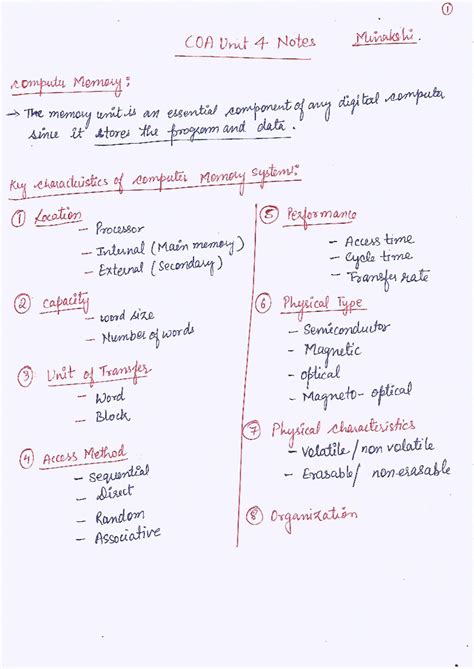 ①
COA Unit 4 Notes Minakshi.
Computer Memory:
→ The memory unit is an essential component of any digital computer
since it stores the program and data.
Key characteristics of computer Memory System:
① Location
- Processor
- Internal (Main memory)
- External (Secondary)
② Capacity
- word size
- Number of words
③ Unit of Transfer
- Word
- Block
④ Access Method
- Sequential
- Direct
- Random
- Associative
⑤ Performance
- Access time
- Cycle time
- Transfer rate
⑥ Physical Type
- Semiconductor
- Magnetic
- optical
- Magneto-optical
⑦ Physical characteristics
- Volatile/non volatile
- Erasable/ non-erasable
⑧ Organization